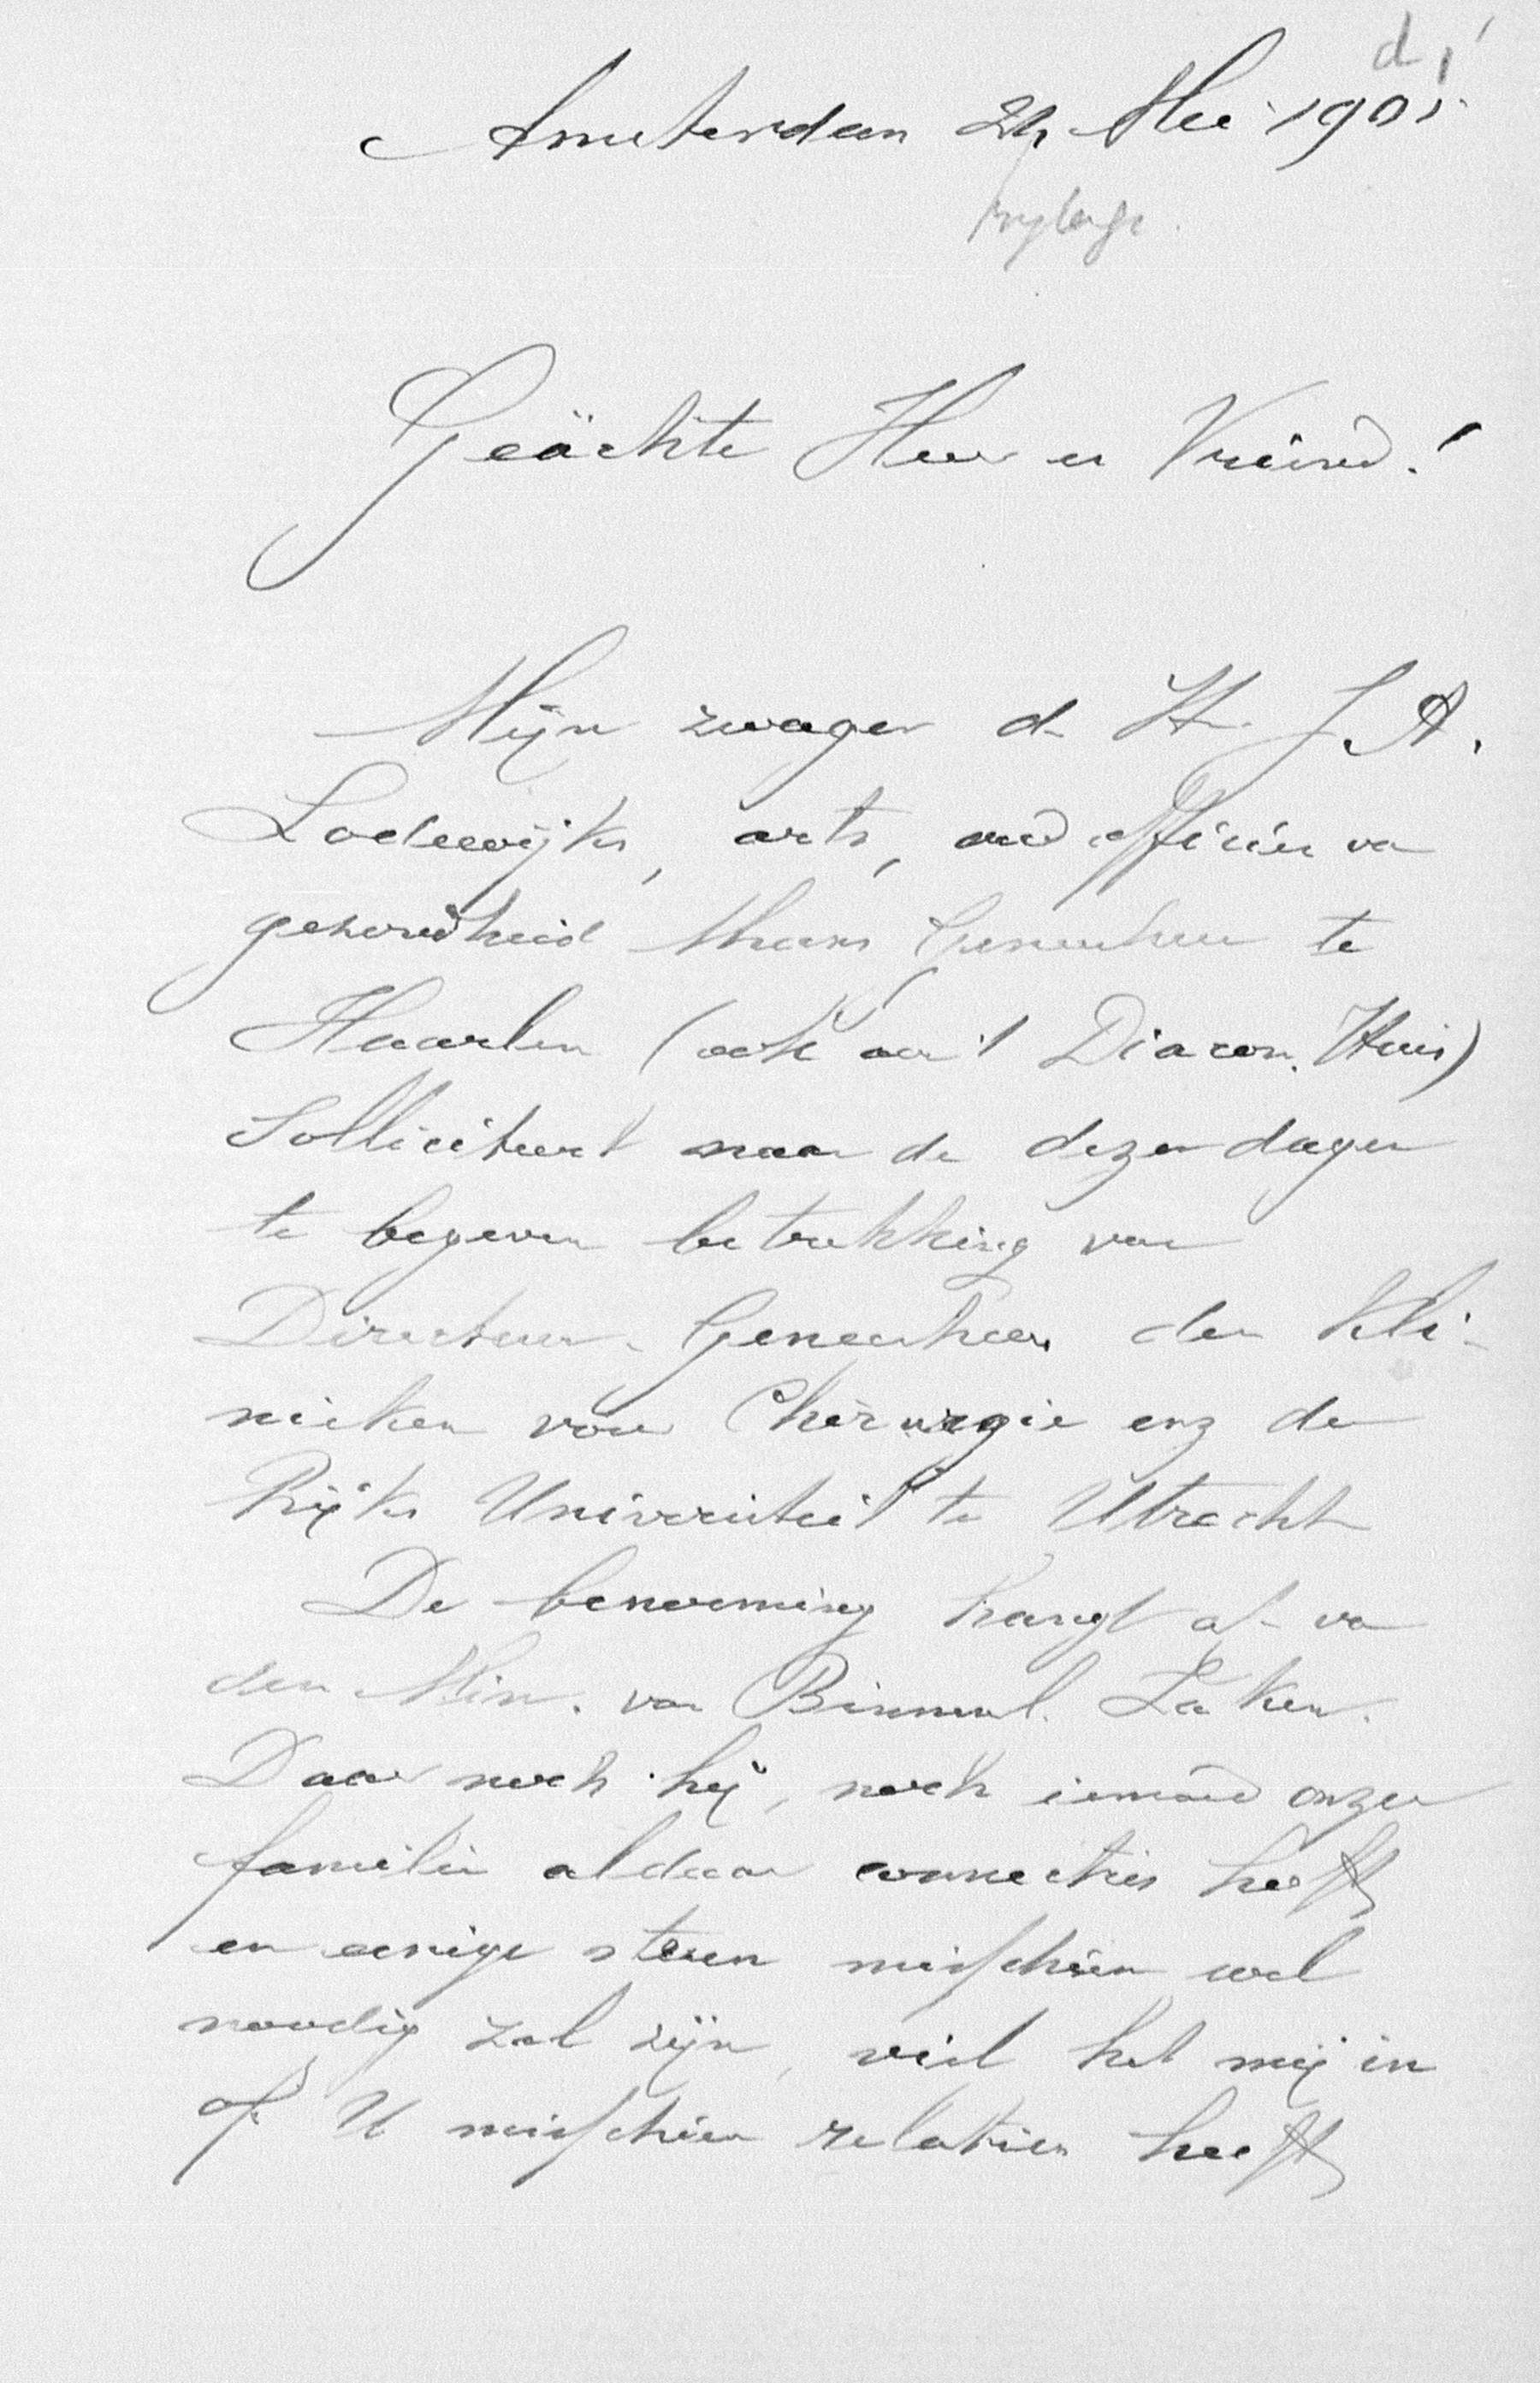 Amsterdam 24 Mei 1901
bijlage.
Geächte Heer en Vriend!
Mijn zwager de H. J. A.
Lodewijks, arts, oud officier van
gezondheid thans Geneesheer te
Haarlem (ook aan 't Diacon. Huis)
Solliciteert naar de dezer dagen
te begeven betrekking van
Directeur-Geneesheer der Kli-
nieken voor Chirurgie enz der
Rijks Universiteit te Utrecht
De benoeming hangt af van
den Min. van Binnenl. Zaken.
Daar noch hij, noch iemand onzer
familie aldaar connecties heeft
en eenige steun misschien wel
noodig zal zijn, viel het mij in
of U misschien relaties heeft